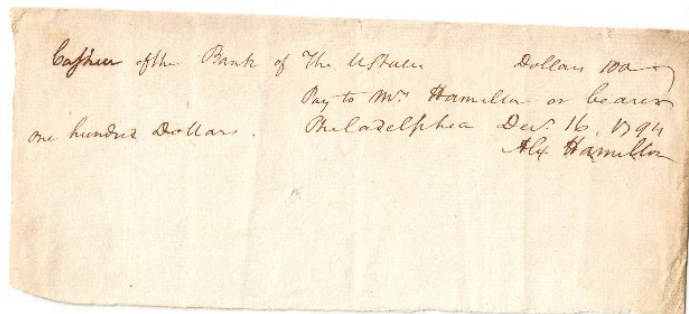 Cashier of the Bank of The UStates Dollars 100
Pay to Mrs Hamilton or bearer
one hundred Dollars. Philadelphia Decr. 16, 1794
Alex Hamilton